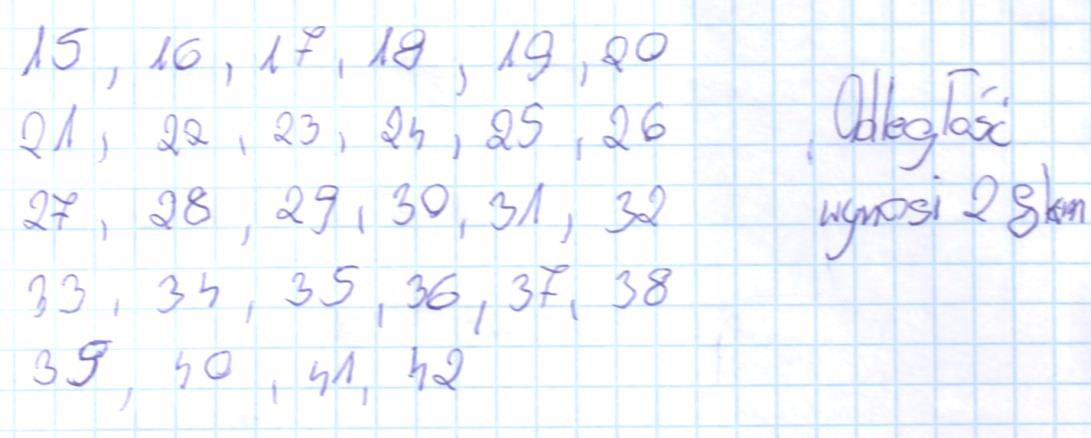 15, 16, 17, 18, 19, 20
21, 22, 23, 24, 25, 26
27, 28, 29, 30, 31, 32
33, 34, 35, 36, 37, 38
39, 40, 41, 42
Odległość
wynosi 28km